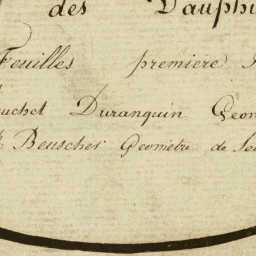 des Dauphi
Feuilles premiere
uchet Duranquin Geom
Beuscher Geometre de